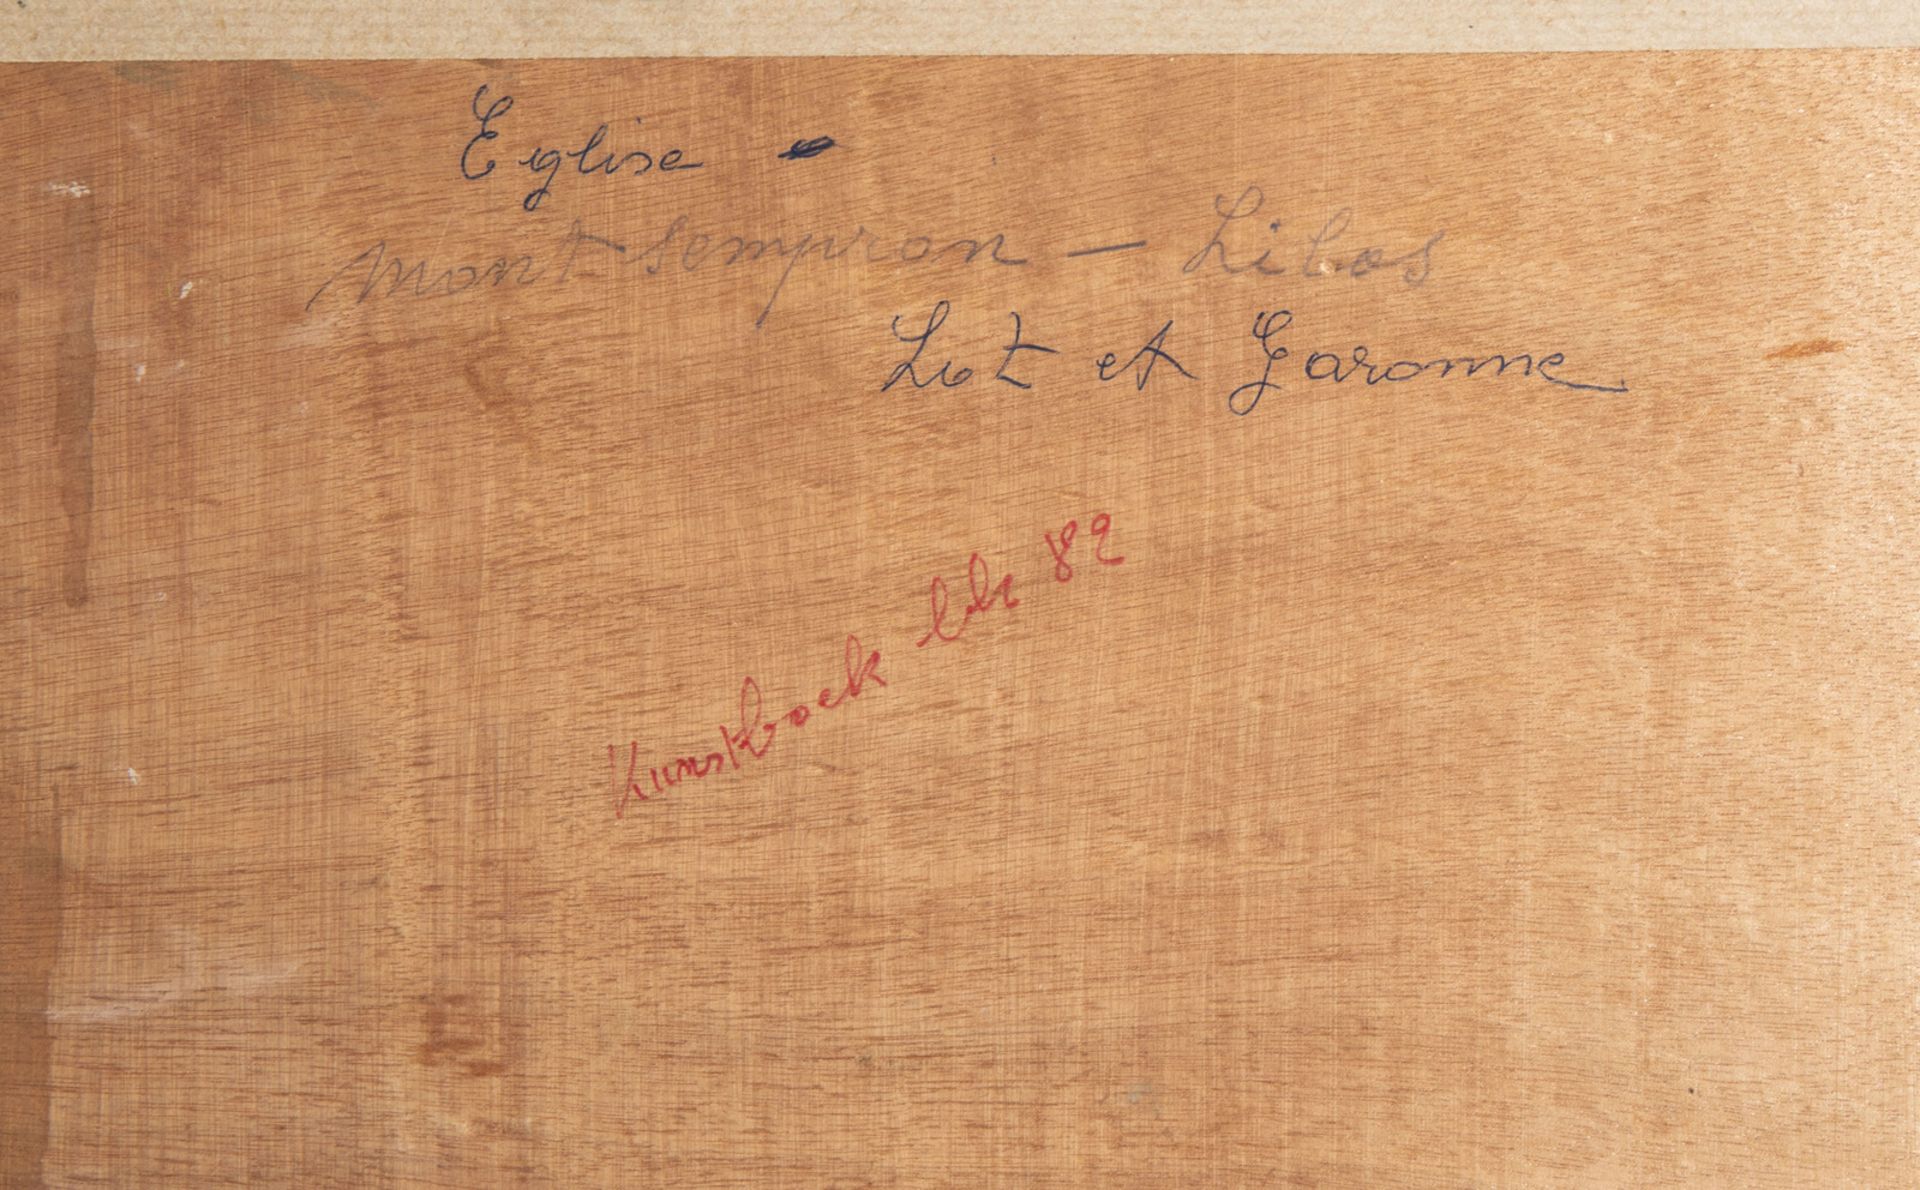 Eglise -
Montsempron - Libos
Lot et Garonne
Kunstboek blz 82